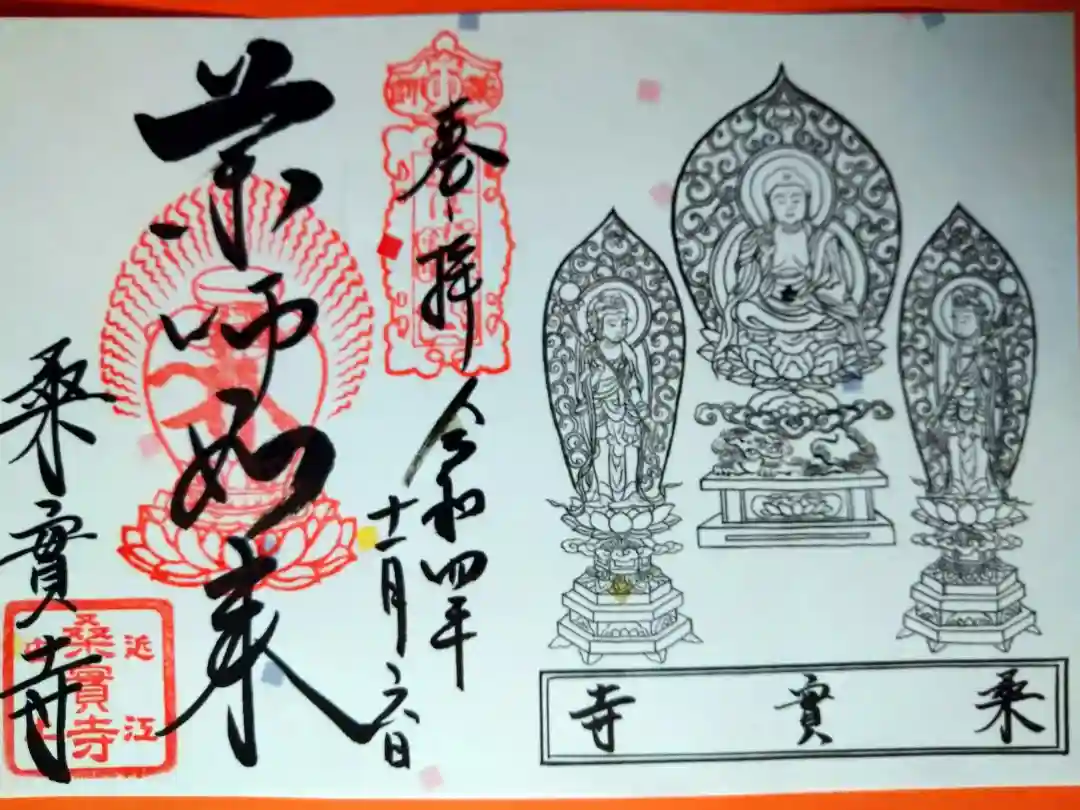 桑實寺
奉拝
令和四年
十一月六日
薬師如来
桑實寺
近江
桑實寺